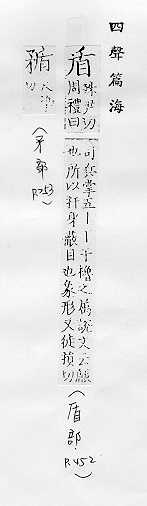 四聲篇海
盾
殊尹切
周禮曰
司兵掌五丨丨干櫓之屬說文云瞂
也所以扞身蔽目也象形又徒損切
（盾部
P.452）
切
（矛部
P.753）